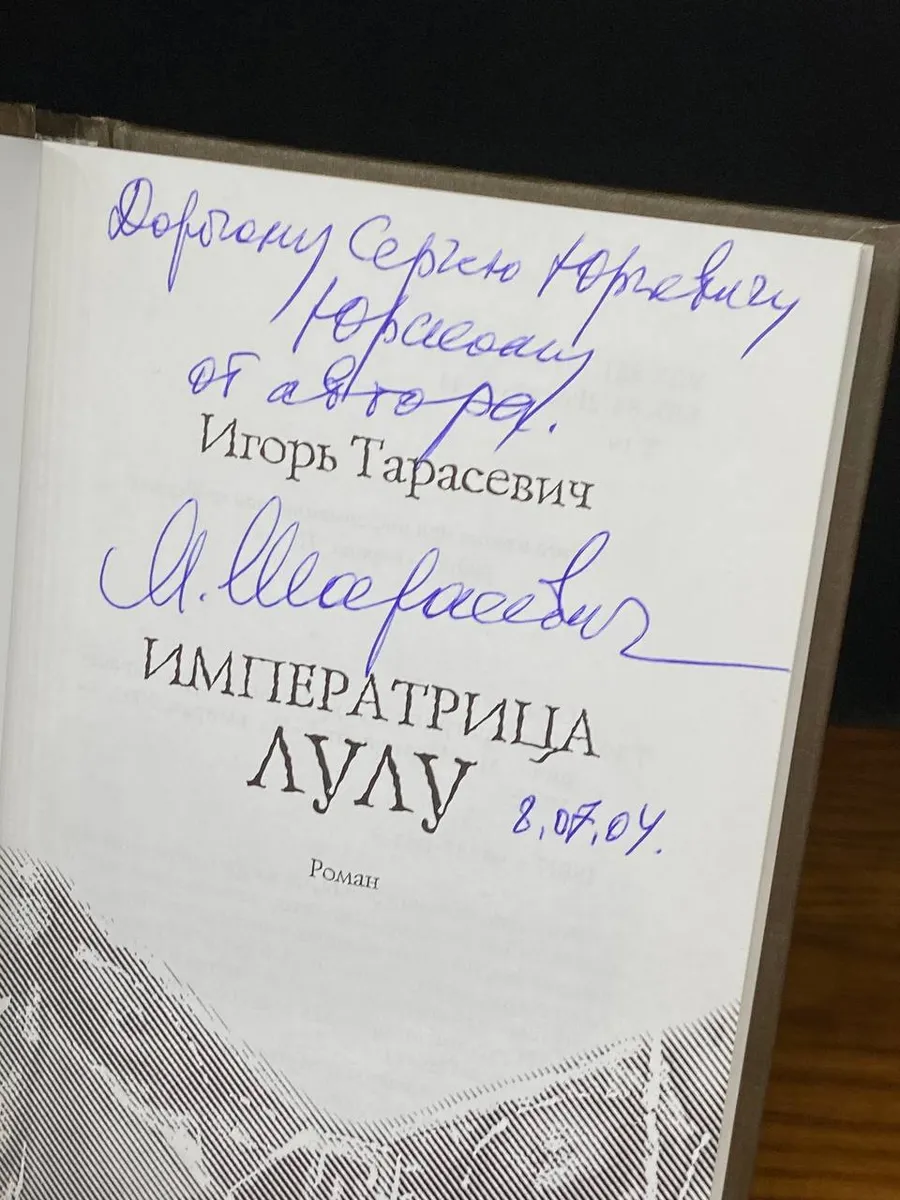 Дорогому Сергею Юрьевичу
от автора.
Игорь Тарасевич
И. Тарасевич
ИМПЕРАТРИЦА
ЛУЛУ
8.07.04.
Роман